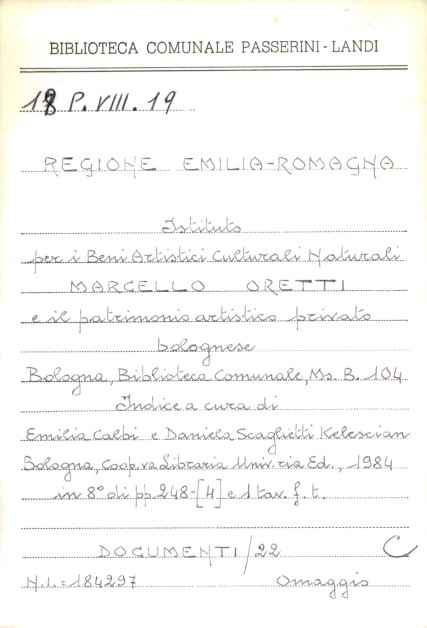 BIBLIOTECA COMUNALE PASSERINI - LANDI
18 P. VIII. 19
REGIONE EMILIA-ROMAGNA
Istituto
per i Beni Artistici Culturali Naturali
MARCELLO ORETTI
e il patrimonio artistico privato
bolognese
Bologna, Biblioteca Comunale, Ms. B. 104
Indice a cura di
Emilia Calbi e Daniela Scaglietti Kelescian
Bologna, Coop.va Libraria Univ.ria Ed., 1984
in 8° di pp. 248-[4] e 1 tav. f. t.
DOCUMENTI/22 C
N.I. = 184297 Omaggio